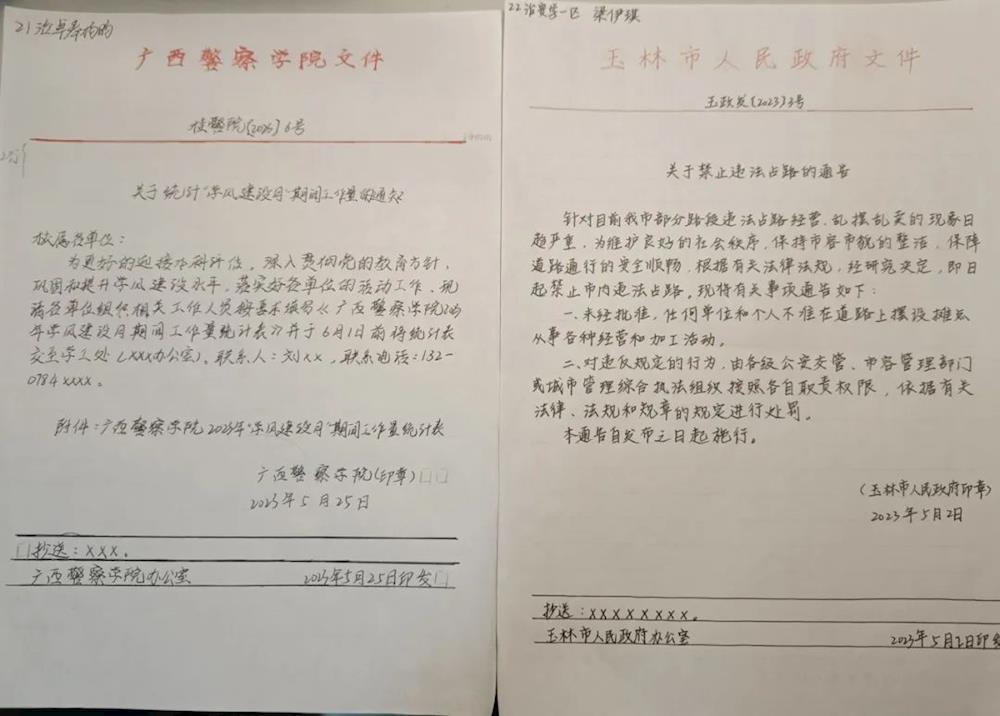 21治卓
广西警察学院文件
桂警院〔2023〕6号
关于统计“学风建设月”期间工作量的通知
校属各单位：
为更好的迎接本科评估，深入贯彻党的教育方针，
巩固和提升学风建设水平，落实好各单位的活动工作，现
请各单位组织相关工作人员按要求填写《广西警察学院2023
年学风建设月期间工作量统计表》并于6月1日前将统计表
交至学工处（xxx办公室）。联系人：刘xx，联系电话：132-
0784xxxx。
附件：广西警察学院2023年“学风建设月”期间工作量统计表
广西警察学院（印章）
2023年5月25日
抄送：XXX。
广西警察学院办公室 2023年5月25日印发
22治安学一区 梁伊琪
玉林市人民政府文件
玉政发〔2023〕3号
关于禁止违法占路的通告
针对目前我市部分路段违法占路经营、乱摆乱卖的现象日
趋严重，为维护良好的社会秩序，保持市容市貌的整洁，保障
道路通行的安全顺畅，根据有关法律法规，经研究决定，即日
起禁止市内违法占路。现将有关事项通告如下：
一、未经批准，任何单位和个人不准在道路上摆设摊点
从事各种经营和加工活动。
二、对违反规定的行为，由各级公安交管、市容管理部门
或城市管理综合执法组织按照各自职责权限，依据有关
法律、法规和规章的规定进行处罚。
本通告自发布之日起施行。
（玉林市人民政府印章）
2023年5月2日
抄送：XXXXXXXX。
玉林市人民政府办公室 2023年5月2日印发